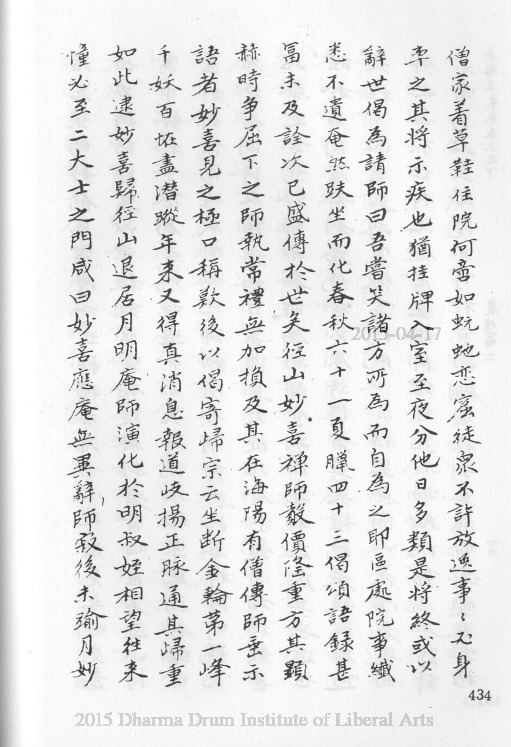 僧家着草鞋住院何啻如蚖虵恋窟徒衆不許放逸事〻必身
率之其將示疾也猶挂牌入室至夜分他日多類是將終或以
辭世偈為請師曰吾嘗笑諸方所為而自為之耶區處院事纖
悉不遺奄然趺坐而化春秋六十一夏臘四十三偈頌語錄甚
冨未及詮次已盛傳於世矣徑山妙喜禪師聲價隆重方其顯
赫時爭屈下之師執常禮無加損及其在海陽有僧傳師垂示
語者妙喜見之極口稱歎後以偈寄歸宗云坐断金輪第一峰
千妖百恠盡潛蹤年来又得真消息報道歧揚正脉通其歸重
如此逮妙喜歸徑山退居月明庵師演化於明叔姪相望往来
憧必至二大士之門咸曰妙喜應庵無異辭師歿後未瑜月妙
434
2015-04-17
2015 Dharma Drum Institute of Liberal Arts